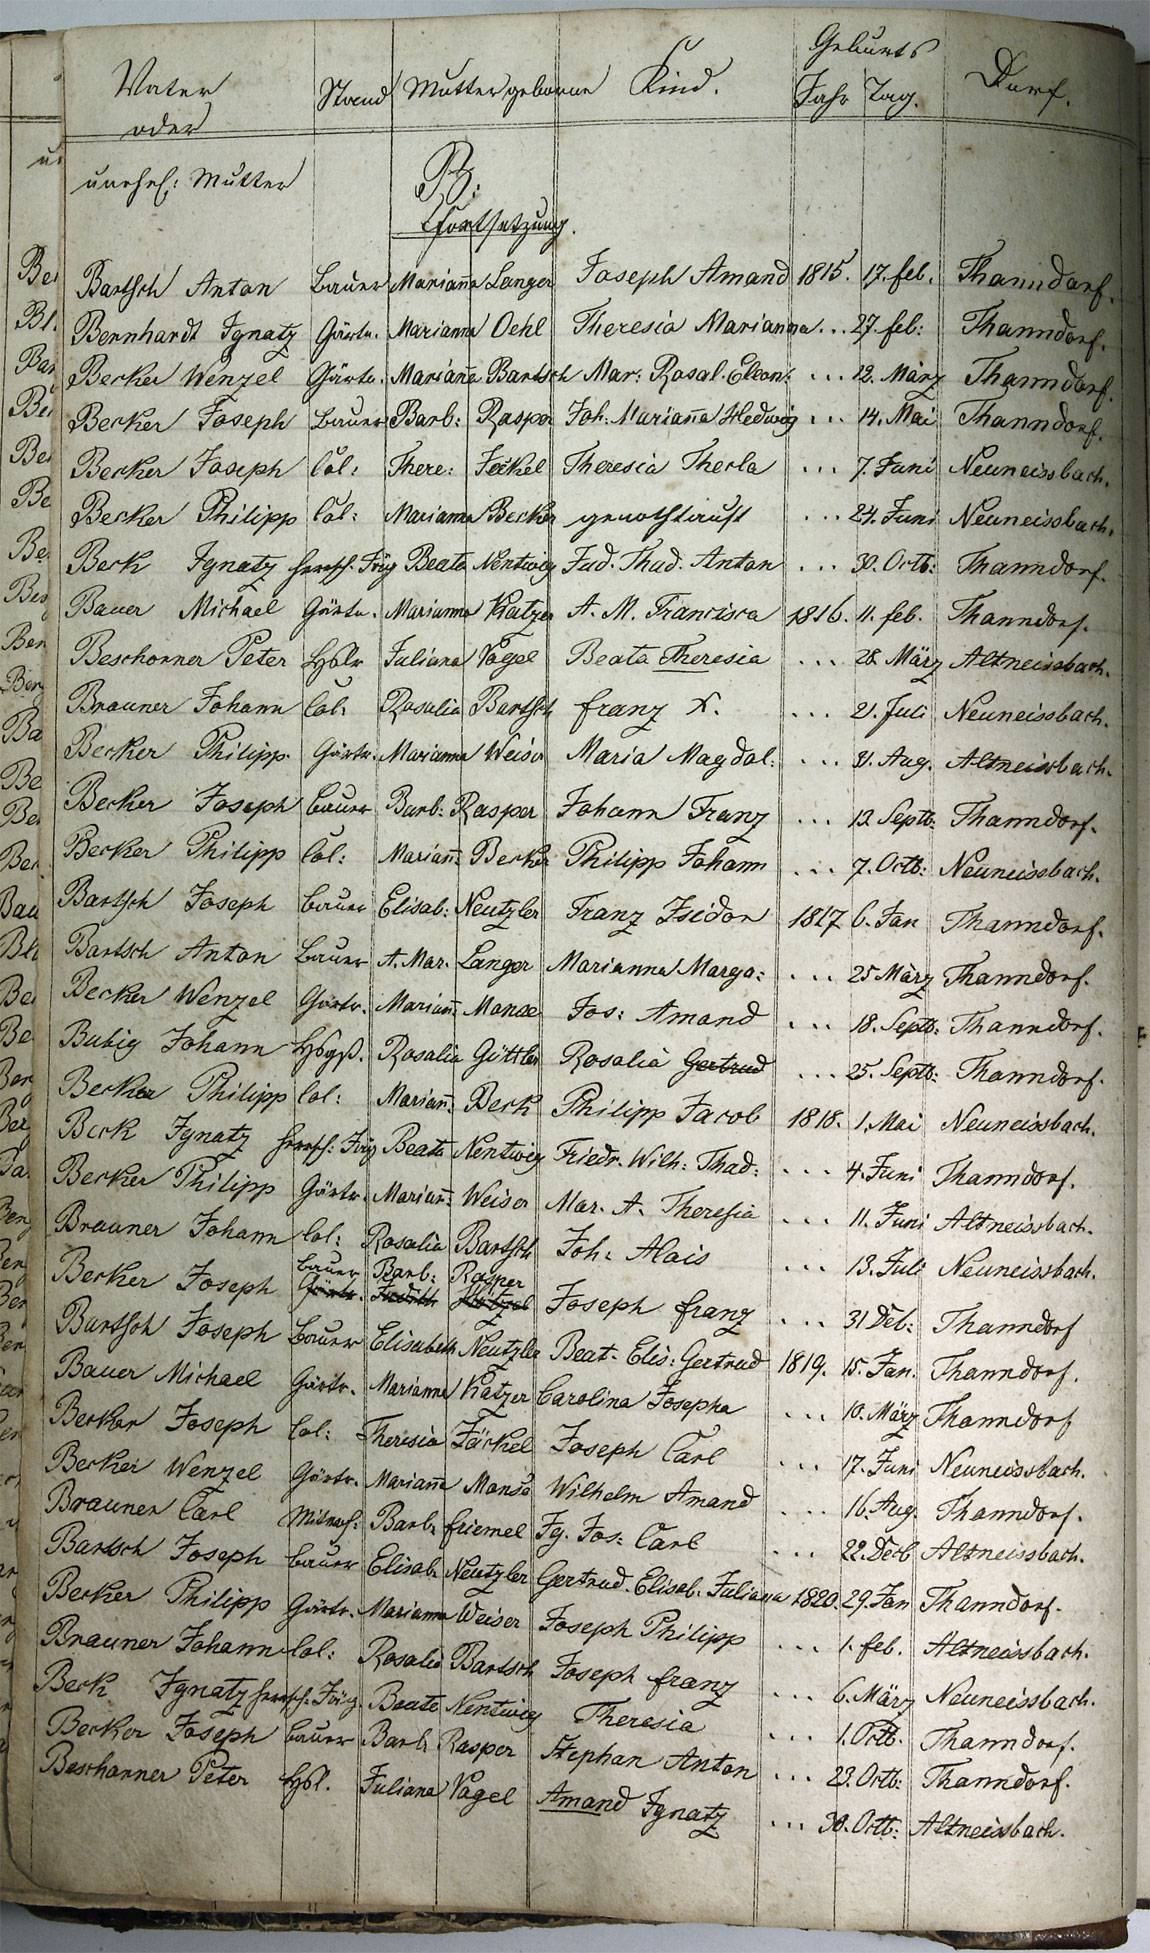 Geburts
Vater Stand Mutter geborne Kind. Jahr Tag. Dorf.
oder
unehel: Mutter
B:
Fortsetzung.
Bartsch Anton Bauer Mariana Langer Joseph Amand 1815. 17. feb. Thanndorf.
Bernhardt Ignatz Gärtn. Marianna Oehl Theresia Marianna ... 27. feb: Thanndorf.
Becker Wenzel Gärtn. Mariana Bartsch Mar: Rosal. Eleon: ... 12. März Thanndorf.
Becker Joseph Bauer Barb: Rasper Joh. Mariana Hedwig ... 14. Mai Thanndorf.
Becker Joseph Col: There: Jeckel Theresia Thecla ... 7. Juni Neuneissbach.
Becker Philipp Col: Marianna Becker genothtauft ... 24. Juni Neuneissbach.
Beck Ignatz herrsch. Jäg Beata Nentwig Jud. Thad. Anton ... 30. Octb: Thanndorf.
Bauer Michael Gärtn. Marianna Katzer A. M. Francisca 1816. 11. feb. Thanndorf.
Beschorner Peter Hslr Juliana Vogel Beata Theresia ... 28. März Altneissbach.
Brauner Johann Col: Rosalia Bartsch franz X. ... 21. Juli Neuneissbach.
Becker Philipp. Gärtn. Marianna Weiser Maria Magdal: ... 31. Aug. Altneissbach.
Becker Joseph Bauer Barb: Rasper Johann Franz ... 13. Septb: Thanndorf.
Becker Philipp Col: Mariann: Becker Philipp Johann ... 7. Octb: Neuneissbach.
Bartsch Joseph Bauer Elisab: Neutzler Franz Isidor 1817 6. Jan Thanndorf.
Bartsch Anton Bauer A. Mar. Langer Marianna Marga: ... 25 März Thanndorf.
Becker Wenzel Gärtr. Mariann: Manse Jos: Amand ... 18. Septb: Thanndorf.
Bubig Johann Rosalia Güttler Rosalia Gertrud ... 25. Septb: Thanndorf.
Becker Philipp Col: Mariann: Beck Philipp Jacob 1818. 1. Mai Neuneissbach.
Beck Ignatz herrsch: Jäg Beata Nentwig Friedr. Wilh: Thad: ... 4. Juni Thanndorf.
Becker Philipp Gärtr. Mariann: Weiser Mar. A. Theresia ... 11. Juni Altneissbach.
Brauner Johann Col: Rosalia Bartsch Joh: Alois ... 13. Juli Neuneissbach.
Bauer Barb: Rasper
Becker Joseph Gärtr. Judith Joseph franz ... 31 Deb: Thanndorf
Bartsch Joseph Bauer Elisabeth Neutzler Beat. Elis: Gertrud 1819. 15. Jan. Thanndorf.
Bauer Michael Gärtr. Marianna Katzer Carolina Josepha ... 10. März Thanndorf
Becker Joseph Col: Theresia Jäckel Joseph Carl ... 17. Juni Neuneissbach.
Becker Wenzel Gärtr. Mariana Manse Wilhelm Amand ... 16. Aug. Thanndorf.
Brauner Carl Barb: friemel Ig. Jos: Carl ... 22. Decb Altneissbach.
Bartsch Joseph Bauer Elisab. Neutzler Gertrud. Elisab. Juliana 1820. 29. Jan Thanndorf.
Becker Philipp Gärtr. Marianna Weiser Joseph Philipp ... 1. feb. Altneissbach.
Brauner Johann Col: Rosalia Bartsch Joseph franz ... 6. März Neuneissbach.
Beck Ignatz herrsch. Jäg. Beata Nentwig Theresia ... 1. Octb. Thanndorf.
Becker Joseph Bauer Barb: Rasper Stephan Anton ... 23. Octb: Thanndorf.
Beschorner Peter Hsl. Juliana Vogel Amand Ignatz ... 30. Octb: Altneissbach.